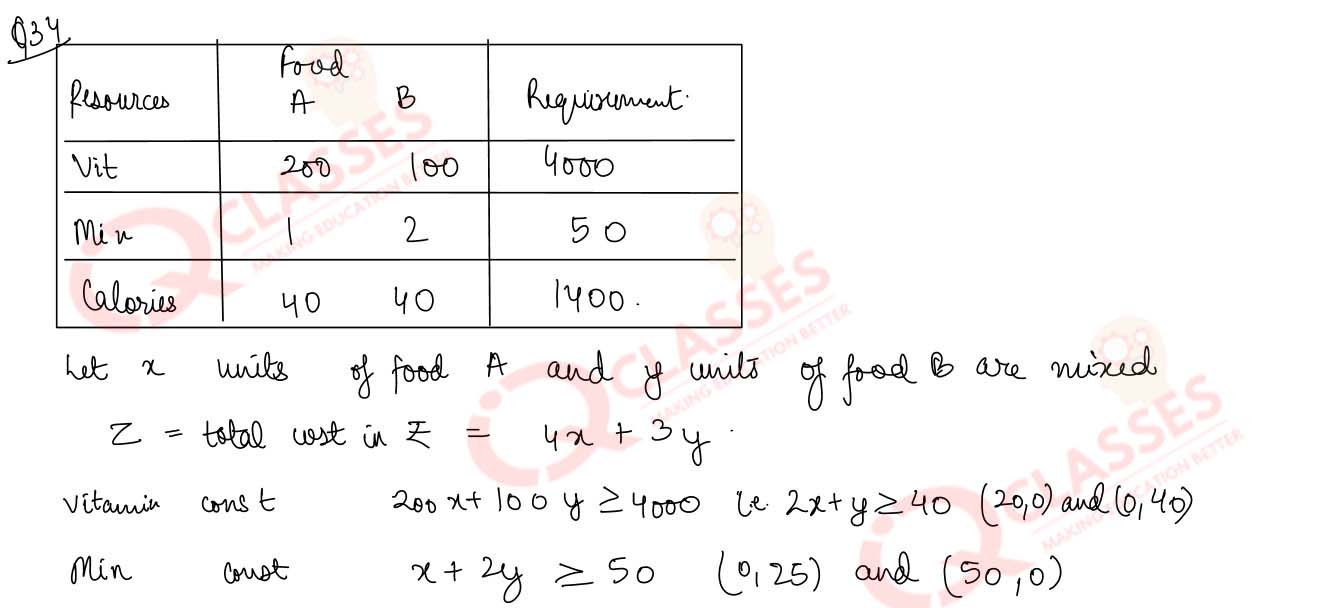 Q34
Food
Resources A B Requirement.
Vit 200 100 4000
Min 1 2 50
Calories 40 40 1400.
Let x units of food A and y units of food B are mixed
Z = total cost in ₹ = 4x + 3y.
Vitamin const 200x + 100y ≥ 4000 i.e. 2x+y ≥ 40 (20,0) and (0,40)
Min const x + 2y ≥ 50 (0,25) and (50,0)
CLASSES
MAKING EDUCATION BETTER
CLASSES
MAKING EDUCATION BETTER
CLASSES
MAKING EDUCATION BETTER